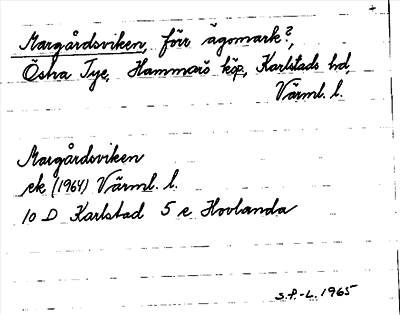 Margårdsviken, förr ägomark?,
Östra Tye, Hammarö köp, Karlstads hd,
Värml. l.
Margårdsviken
ek (1964) Värml. l.
10 D Karlstad 5 e Hovlanda
S.P.-L. 1965